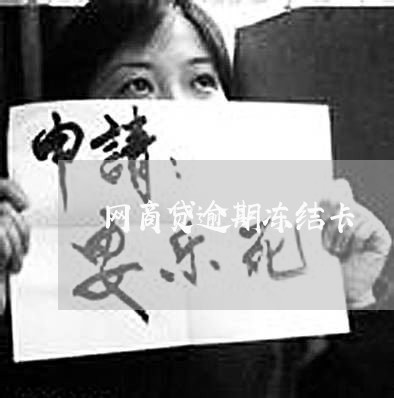 申請：
网商贷逾期冻结卡
安乐死